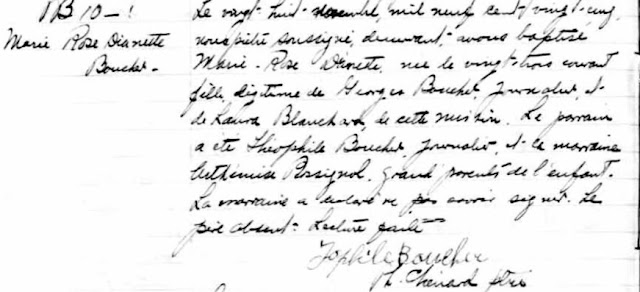 B 10 -
Marie Rose Dianette
Boucher -
Le vingt huit novembre, mil neuf cent vingt-cinq,
nous prêtre soussigné, desservant, avons baptisé
Marie-Rose Dianette, née le vingt-trois courant
fille légitime de Georges Boucher, journalier, et
de Laura Blanchard, de cette mission. Le parrain
a été Théophile Boucher, journalier, et la marraine
Arthémise Rossignol, grand parents de l'enfant.
La marraine a déclaré ne pas savoir signer. Le
père absent. Lecture faite
Tophile Boucher
Th. Chenard ptre